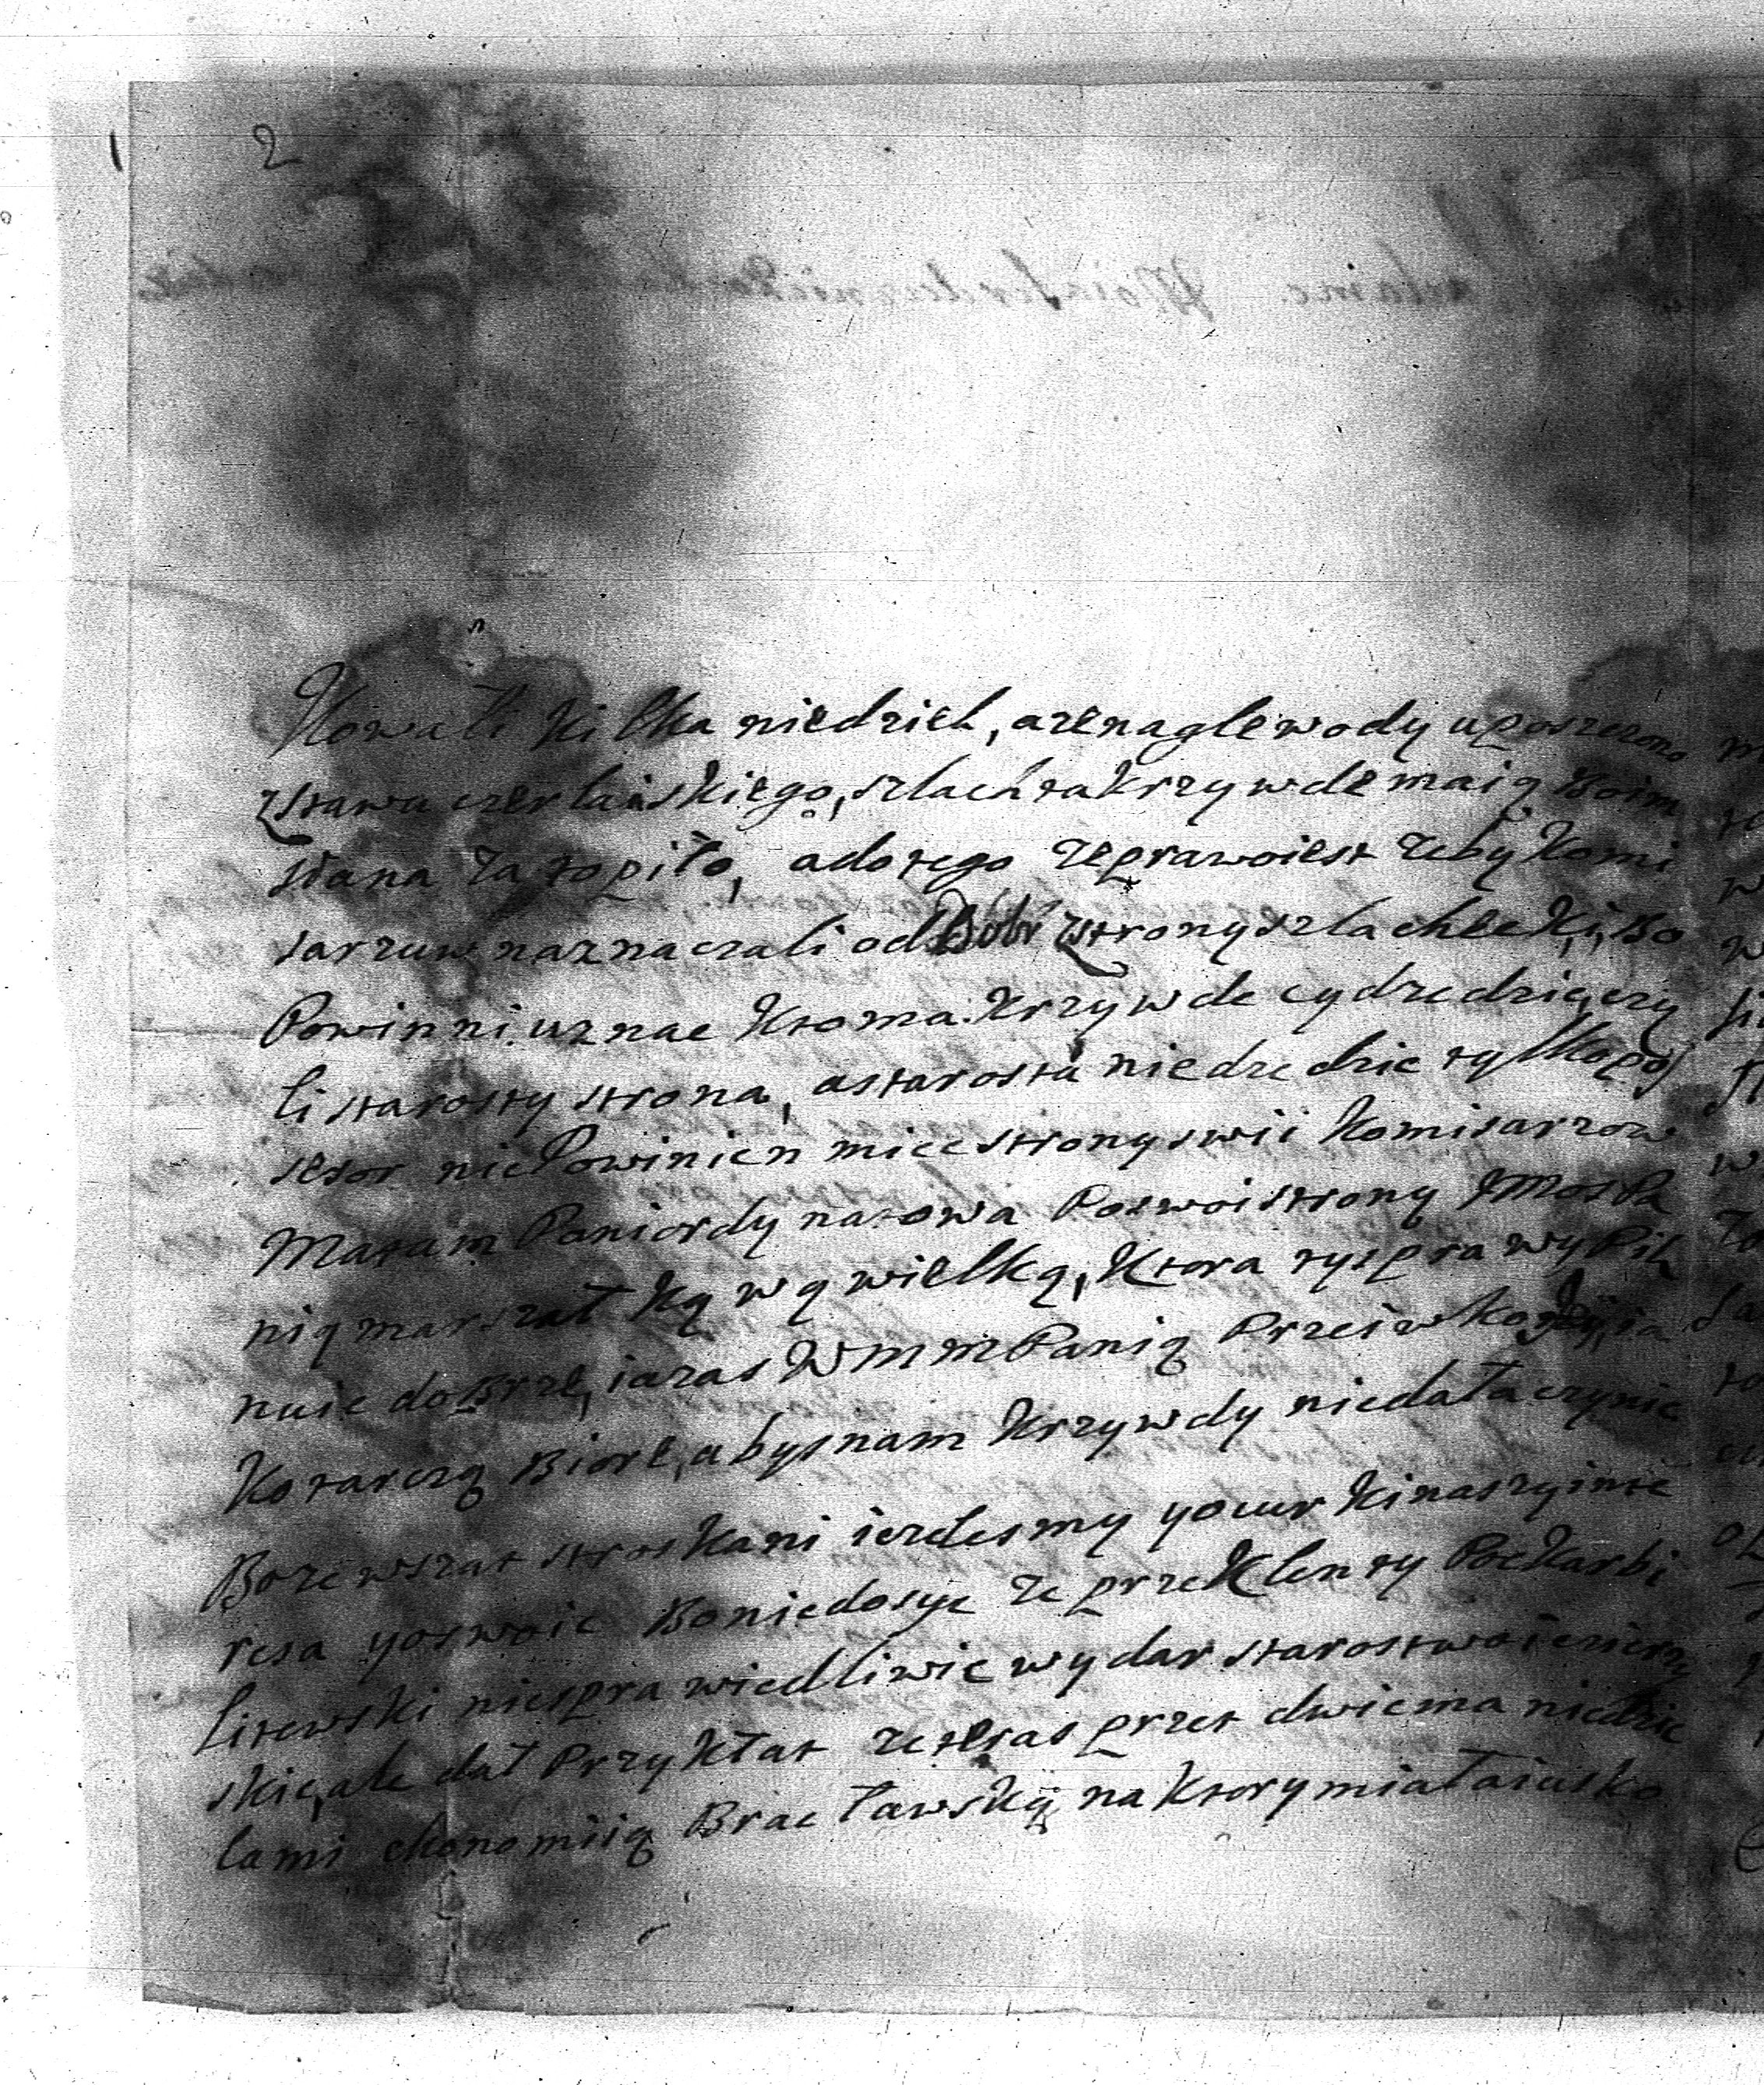 2
kowali kilka niedziel, azenagle wody uposzczono
zstawu czerlaiskiego, szlachta krzywde maią Boim
siana zatopiło, adotego zeprawoiest zeby komi
sarzuw naznaczali od Dobr zstrony szlacheckii, Bo
Powinni uznac ktoma krzywde cydzedzic, czy
li starosty strona, astarosta niedzedzic tylko pos
sesor niePowinien miec strony swii komisarzow
Matam Paniordy natowa Poswoi strony JMosPa
nią marszałkową wielką, ktora tysprawy Pil
nuie doBrze, iazas WMMPanią Przeiw
kotarczą Biore, abys nam krzywdy niedała czynic
Boze wszak stroskani iezdesmy yocur ki naszy inte
resa yoswoie Boniedosyc ze przeklenty Pockarbi
litewski niesprawiedliwie wydar starostwo
skie, ale dał Przykłat zeteras przet dwiema niedzie
lami ekonomiią Bracławską na ktory miała iusko